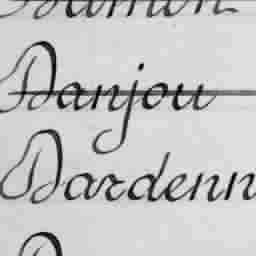 Danjou
Dardenn